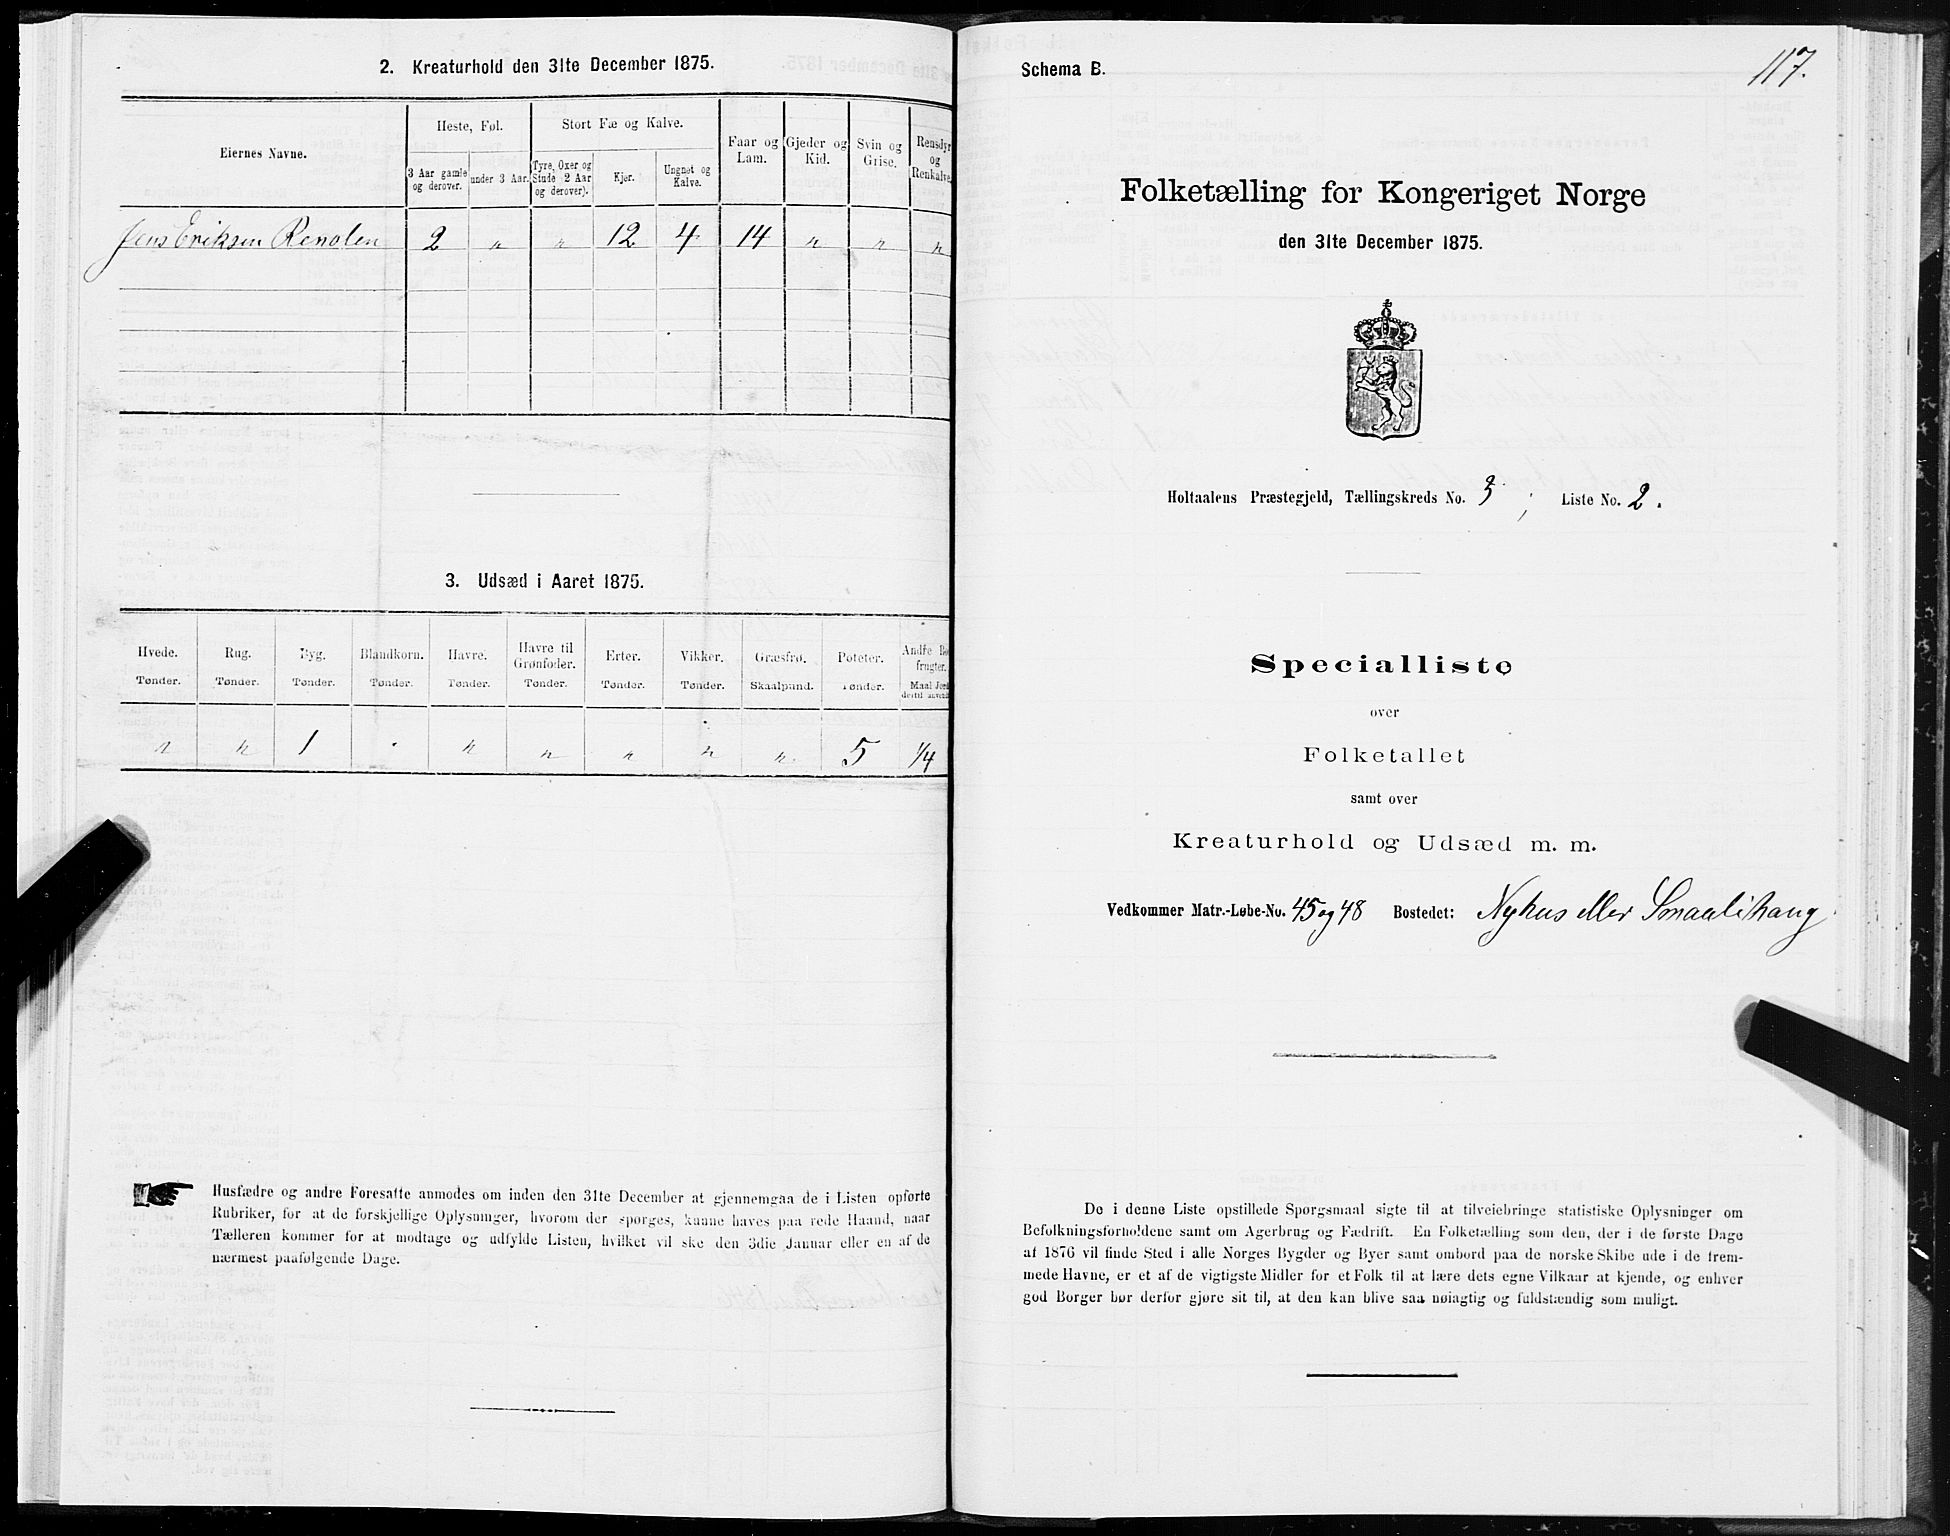 2. Kreaturhold den 31te December 1875.
Eiernes Navne.
Heste, Føl.
Stort Fæ og Kalve.
Faar og Lam.
Gjeder og Kid.
Svin og Grise.
Rensdyr og Renkalve.
3 Aar gamle og derover.
under 3 Aar.
Tyre, Oxer og Stude 2 Aar og derover).
Kjer.
Ungnøt og Kalve.
Jens Eriksen Renolen 2 " " 12 4 14 " " "
3. Udsæd i Aaret 1875.
Hvede. Rug. Byg. Blandkorn. Havre. Havre til Grønfoder. Erter. Vikker. Græsfrø. Poteter. Andre Ro frugter.
Tønder. Tønder. Tønder. Tønder. Tønder. Tønder. Tønder. Tønder. Skaalpund. Tønder. Maal Jord dertil anvendt
" " 1 . " " " " " 5 1/4
Husfædre og andre Foresatte anmodes om inden den 31te December at gjennemgaa de i Listen opførte
Rubriker, for at de forskjellige Oplysninger, hvorom der spørges, kunne haves paa rede Haand, naar
Tælleren kommer for at modtage og udfylde Listen, hvilket vil ske den 3die Januar eller en af de
nærmest paafølgende Dage.
117.
Schema B.
Folketælling for Kongeriget Norge
den 31te December 1875.
Holtaalens Præstegjeld, Tællingskreds No. 3; Liste No. 2.
Specialliste
over
Folketallet
samt over
Kreaturhold og Udsæd m. m.
Vedkommer Matr.-Løbe-No. 45 og 48 Bostedet: Nyhus eller Smaalihaug
De i denne Liste opstillede Spørgsmaal sigte til at tilveiebringe statistiske Oplysninger om
Befolkningsforholdene samt om Agerbrug og Fædrift. En Folketælling som den, der i de første Dage
af 1876 vil finde Sted i alle Norges Bygder og Byer samt ombord paa de norske Skibe ude i de frem-
mede Havne, er et af de vigtigste Midler for et Folk til at lære dets egne Vilkaar at kjende, og enhver
god Borger bør derfor gjøre sit til, at den kan blive saa nøiagtig og fuldstændig som muligt.